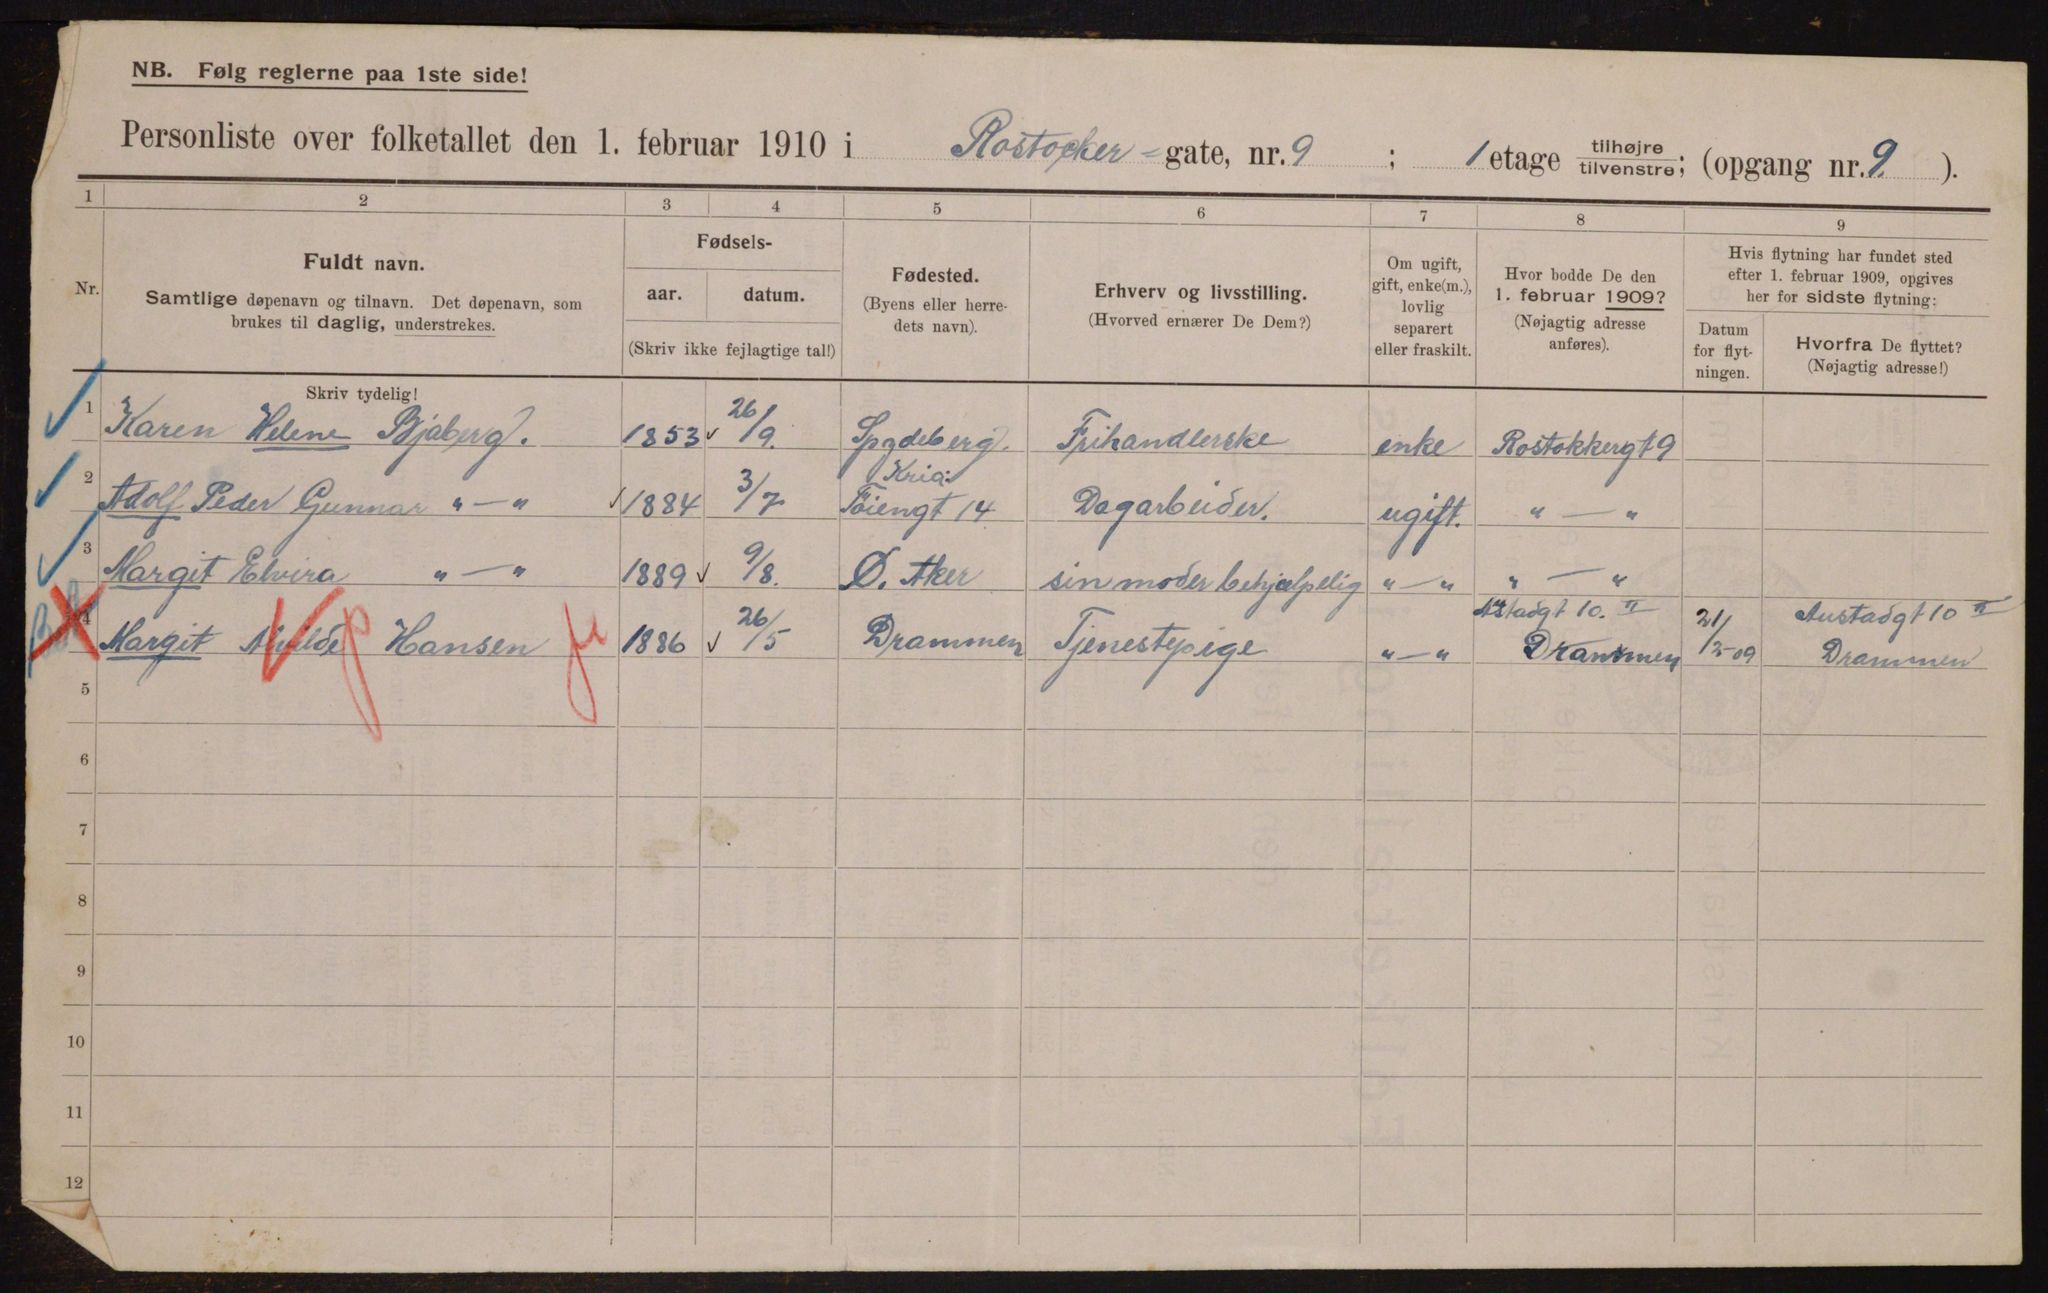 NB. Følg reglerne paa 1ste side!
Personliste over folketallet den 1. februar 1910 i Rostocker-gate, nr. 9 ; 1 etage tilhøjre/tilvenstre; (opgang nr. 9. ).
1 2 3 4 5 6 7 8 9
Nr.
Fuldt navn.
Samtlige døpenavn og tilnavn. Det døpenavn, som
brukes til daglig, understrekes.
Fødsels-
aar. datum.
(Skriv ikke fejlagtige tal!)
Fødested.
(Byens eller herre-
dets navn).
Erhverv og livsstilling.
(Hvorved ernærer De Dem?)
Om ugift,
gift, enke(m.),
lovlig
separert
eller fraskilt.
Hvor bodde De den
1. februar 1909?
(Nøjagtig adresse
anføres).
Hvis flytning har fundet sted
efter 1. februar 1909, opgives
her for sidste flytning:
Datum
for flyt-
ningen.
Hvorfra De flyttet?
(Nøjagtig adresse!)
Skriv tydelig!
1 Karen Helene Bjaberg. 1853 26/9. Spydeberg. Frihandlerske enke Rostokkergt 9
2 Adolf Peder Gunnar " — " 1884 3/7 Kria: Töiengt 14 Dagarbeider. ugift. " — "
3 Margit Elvira " — " 1889 9/8. Ø. Aker sin moder behjælpelig " — " " — "
4 Margit Hansen 1886 26/5 Drammen Tjenestepige " — " Austadgt 10. II Drammen 21/2-09 Austadgt 10 II Drammen
5
6
7
8
9
10
11
12